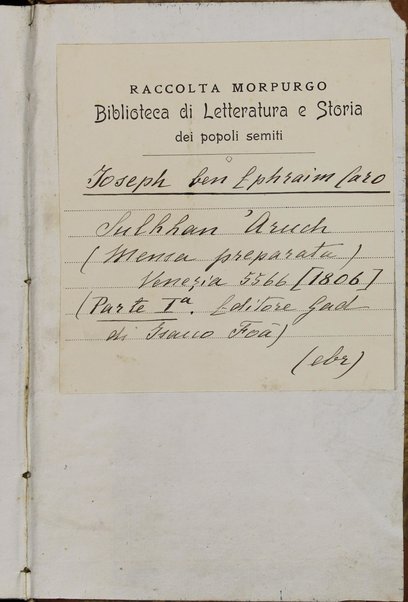 RACCOLTA MORPURGO
Biblioteca di Letteratura e Storia
dei popoli semiti
Joseph ben Ephraim Caro
Sulkhan 'Aruch
(Mensa preparata)
Venezia 5566 [1806]
(Parte Iª. Editore Gad
di Isacco Foà)
(ebr)